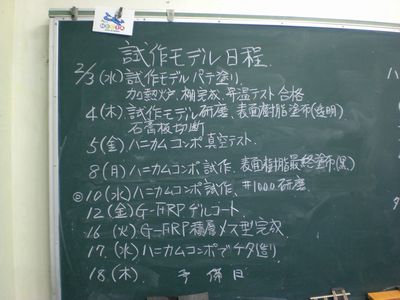 試作モデル日程
2/3(水)試作モデルパテ塗り、
加熱炉、棚完成、昇温テスト合格
4(木)試作モデル研磨、表面樹脂塗布(透明)
石膏板切断
5(金)ハニカムコンポ真空テスト
8(月)ハニカムコンポ試作、表面樹脂最終塗布(黒)
◎10(水)ハニカムコンポ試作、#1000研磨
12(金)G-FRPゲルコート
16(火)G-FRP積層メス型完成
17(水)ハニカムコンポでケタ造り
18(木) 予備日
ハ
タ